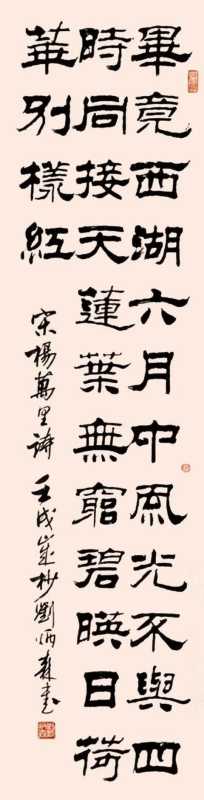 畢竟西湖六月中風光不與四
時同接天蓮葉無窮碧暎日荷
華別樣紅
宋楊萬里詩 壬戌歲杪劉炳森書